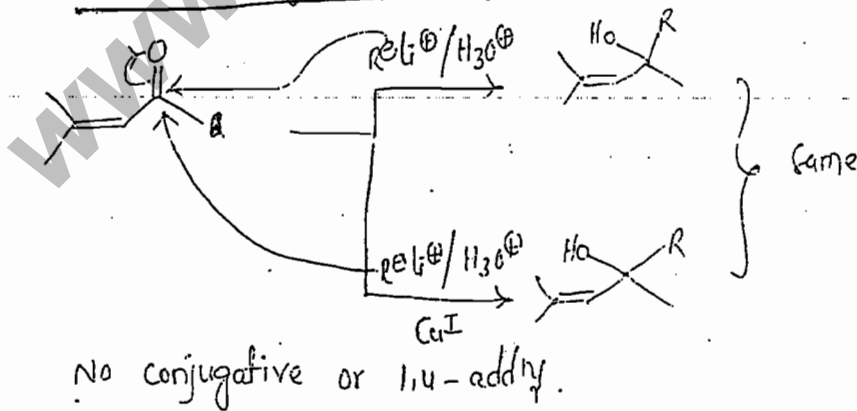 WWW
R⊖Li⊕/H3O⊕
HO R
O
Same
R⊖Li⊕/H3O⊕
HO R
CuI
No conjugative or 1,4-addⁿ.